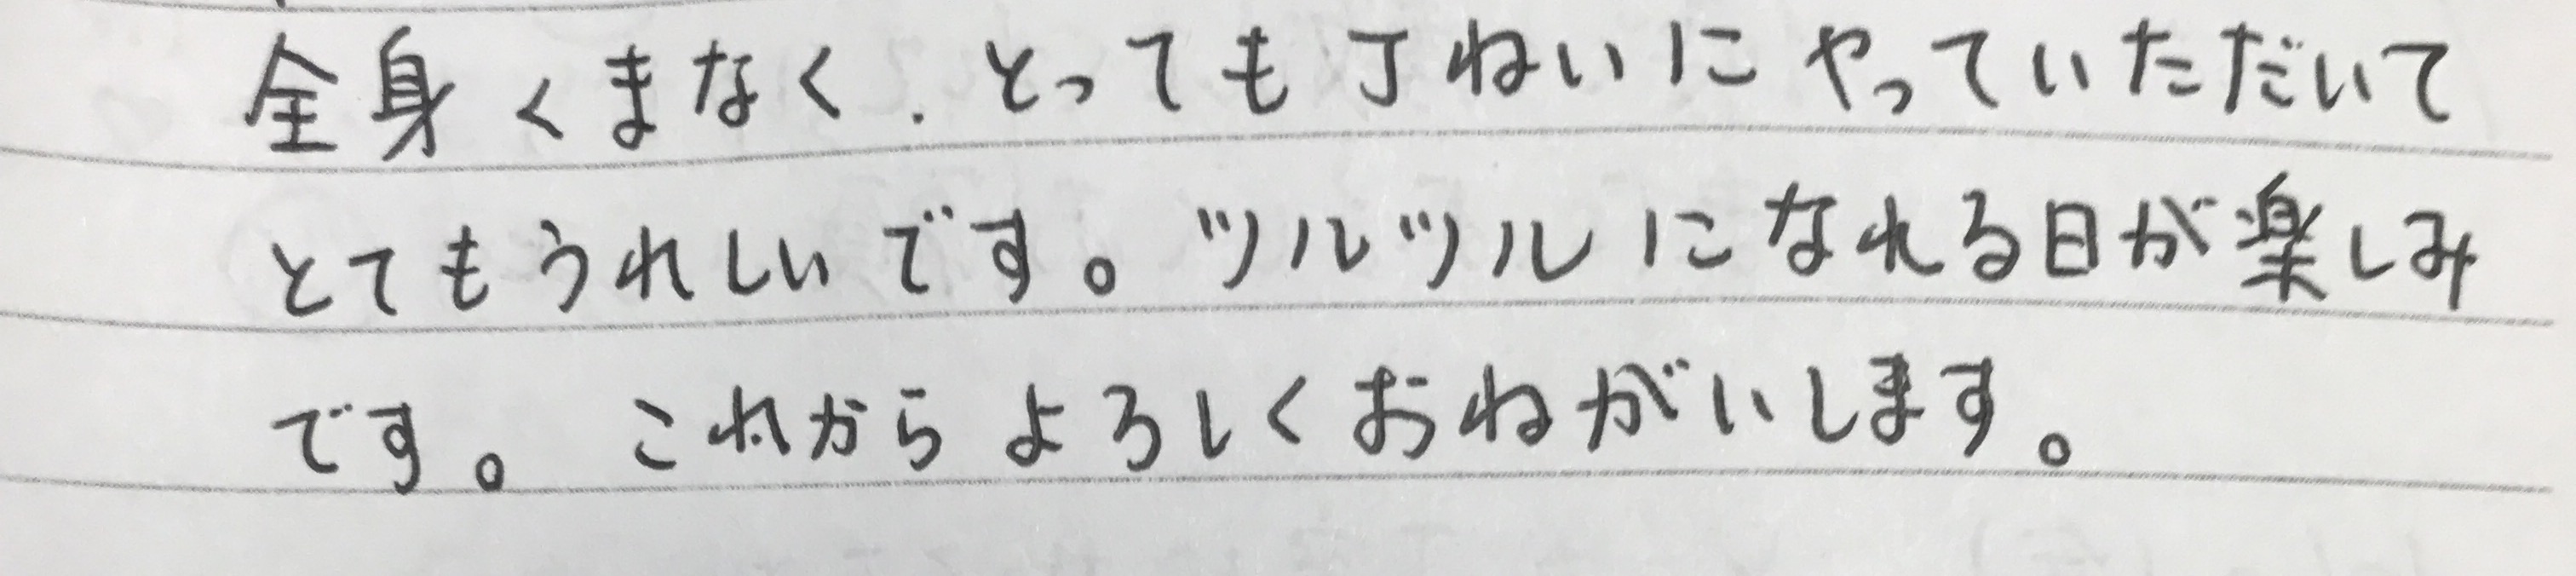 全身くまなく、とっても丁ねいにやっていただいて
とてもうれしいです。ツルツルになれる日が楽しみ
です。これからよろしくおねがいします。